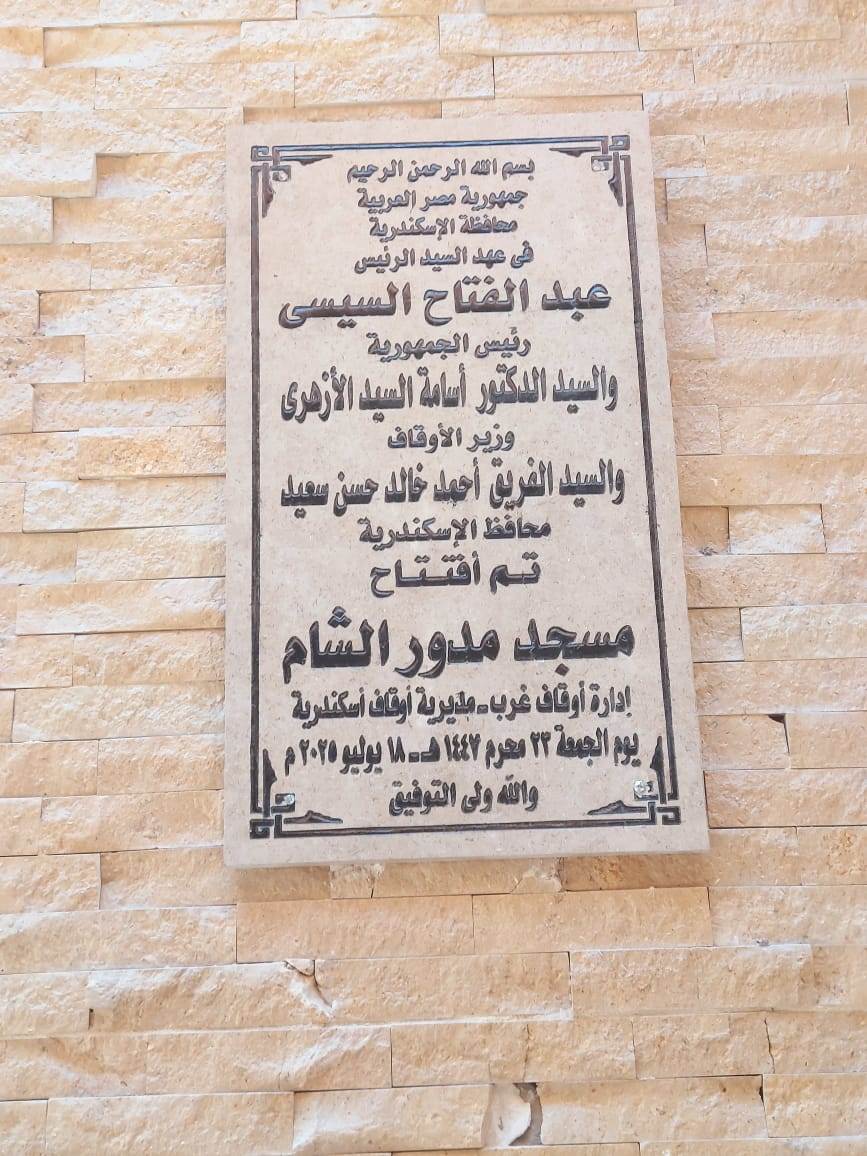 بسم الله الرحمن الرحيم
جمهورية مصر العربية
محافظة الإسكندرية
فى عهد السيد الرئيس
عبد الفتاح السيسى
رئيس الجمهورية
والسيد الدكتور أسامة السيد الأزهرى
وزير الأوقاف
والسيد الفريق أحمد خالد حسن سعيد
محافظ الإسكندرية
تم أفتتاح
مسجد مدور الشام
إدارة أوقاف غرب - مديرية أوقاف أسكندرية
يوم الجمعة ٢٣ محرم ١٤٤٧ هـ - ١٨ يوليو ٢٠٢٥ م
والله ولى التوفيق